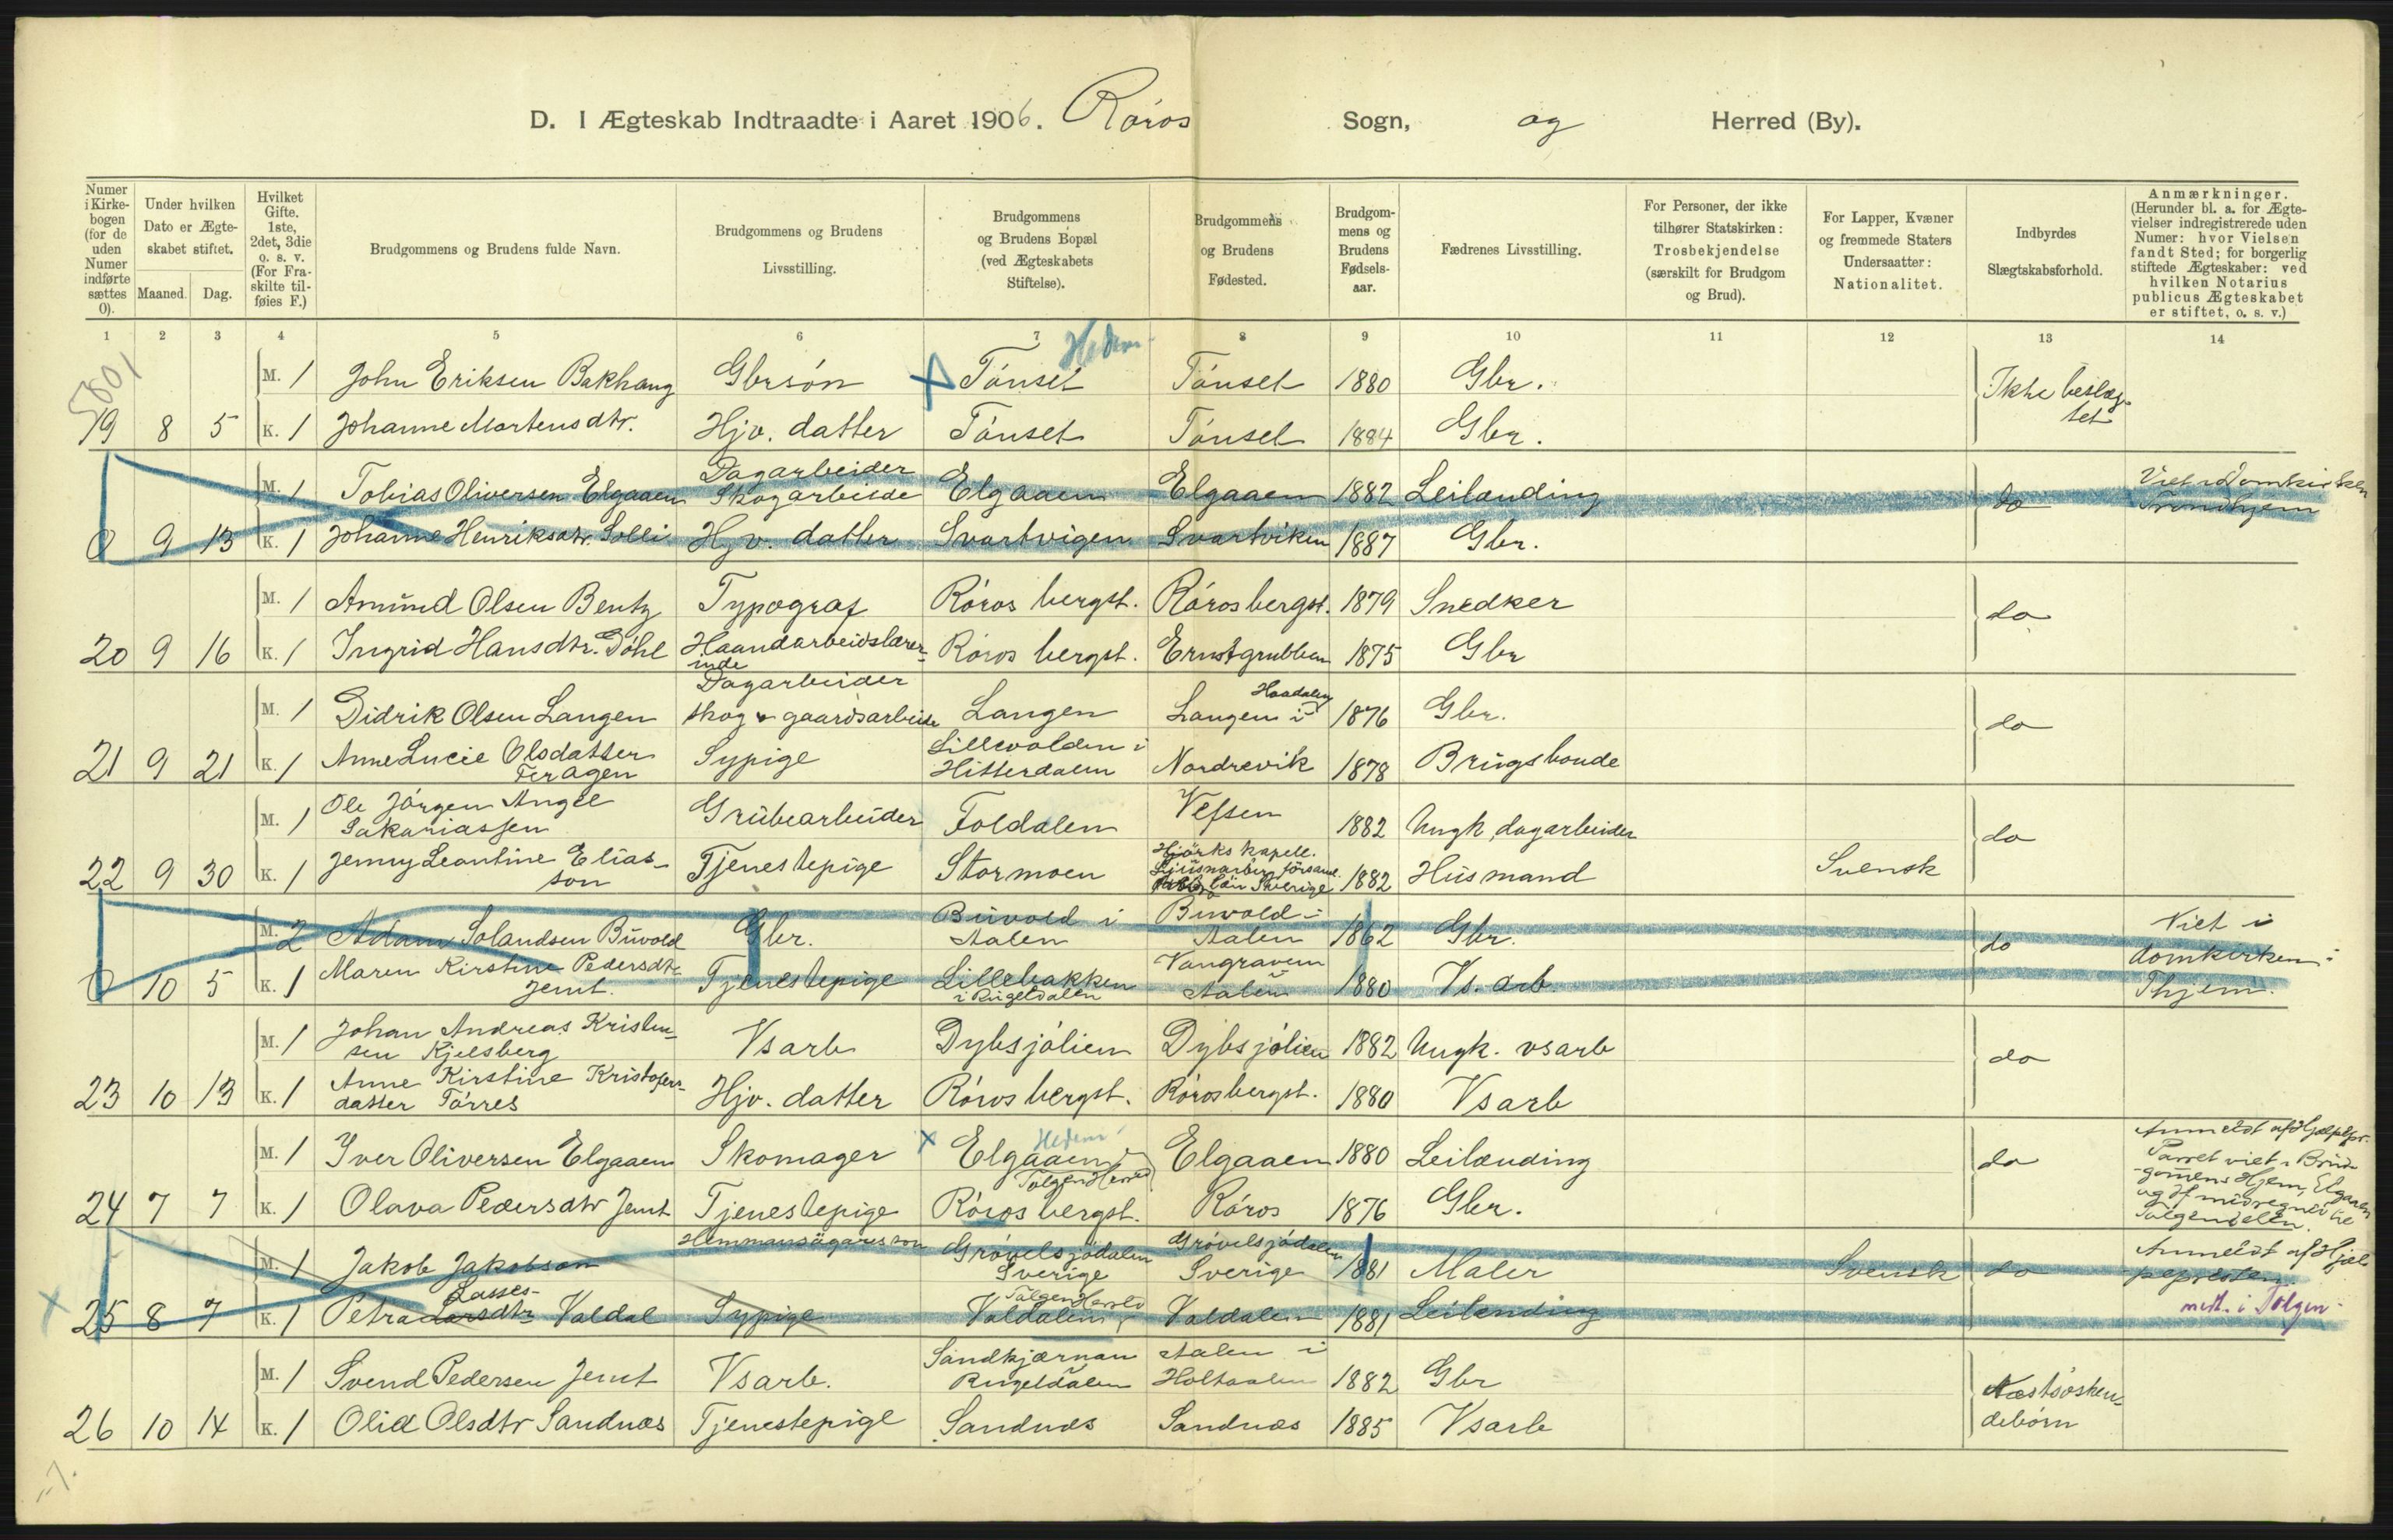 D. I Ægteskab Indtraadte i Aaret 1906. Röros Sogn, og Herred (By).
Numer i Kirkebogen (for de uden Numer indførte sættes 0).
Under hvilken Dato er Ægteskabet stiftet.
Maaned. Dag.
Hvilket Gifte. 1ste, 2det, 3die o. s. v. (For Fraskilte tilføies F.)
Brudgommens og Brudens fulde Navn.
Brudgommens og Brudens Livsstilling.
Brudgommens og Brudens Bopæl (ved Ægteskabets Stiftelse).
Brudgommens og Brudens Fødested.
Brudgommens og Brudens Fødselsaar.
Fædrenes Livsstilling.
For Personer, der ikke tilhører Statskirken: Trosbekjendelse (særskilt for Brudgom og Brud).
For Lapper, Kvæner og fremmede Staters Undersaatter: Nationalitet.
Indbyrdes Slægtskabsforhold.
Anmærkninger. (Herunder bl. a. for Ægtevielser indregistrerede uden Numer: hvor Vielsen fandt Sted; for borgerlig stiftede Ægteskaber: ved hvilken Notarius publicus Ægteskabet er stiftet, o. s. v.)
1 2 3 4 5 6 7 8 9 10 11 12 13 14
5801
Hedm
M. 1 John Eriksen Bakhaug Gbrsön Tönset Tönset 1880 Gbr. Ikke beslæg-
tet
19 8 5 K. 1 Johanne Martensdtr. Hjv. datter Tönset Tönset 1884 Gbr.
M. 1 Tobias Oliversen Elgaaen Dagarbeider Skogarbeide Elgaaen Elgaaen 1882 Leilænding do Viet i Domkirken
Trondhjem
0 9 13 K. 1 Johanne Henriksdtr. Solli Hjv. datter Svartvigen Svartviken 1887 Gbr.
M. 1 Amund Olsen Bentz Typograf Röros bergst. Röros bergst. 1879 Snedker do
20 9 16 K. 1 Ingrid Hansdtr. Döhl Haandarbeidslærer-
inde Röros bergst. Ernstgrubben 1875 Gbr
M. 1 Didrik Olsen Langen Dagarbeider skog & gaardsarbeide Langen Langen i Haadalen 1876 Gbr. do
21 9 21 K. 1 Anne Lucie Olsdatter
Feragen Sypige Lillevolden i
Hitterdalen Nordrevik 1878 Brugsbonde
M. 1 Ole Jörgen Angel
Sakariassen Grubearbeider Foldalen Vefsen 1882 Ungk. dagarbeider do
22 9 30 K. 1 Jenny Leontine Elias-
son Tjenestepige Stormoen Hjörks kapell.
Ljusnarbergs församl.
län Sverige 1882 Husmand Svensk
M. 2 Adam Solandsen Buvold Gbr. Buvold i
Aalen Buvold i
Aalen 1862 Gbr. do Viet i
domkirken i
Thjem.
0 10 5 K. 1 Maren Kirstine Pedersdtr
Jemt. Tjenestepige Lillebakken
i Rugeldalen Vangraven
Aalen 1880 Vs. arb.
M. 1 Johan Andreas Kristen-
sen Kjelsberg Vsarb Dybsjölien Dybsjölien 1882 Ungk. vsarb do
23 10 13 K. 1 Anne Kirstine Kristofers-
datter Törres Hjv. datter Röros bergst. Rörosbergst. 1880 Vsarb
Hedm
M. 1 Iver Oliversen Elgaaen Skomager Elgaaen i
Tolgen Herred Elgaaen 1880 Leilænding do Anmeldt af Hjælpepr.
Parret viet i Brud-
gommens Hjem, Elgaaen
24 7 7 K. 1 Olava Pedersdtr Jemt Tjenestepige Röros bergst. Röros 1876 Gbr.
M. 1 Jakob Jakobson Hemmansägares son Grövelsjödalen
Sverige Grövelsjödalen
Sverige 1881 Maler Svensk do Anmeldt af Hjæl-
pepresten.
medt. i Tolgen
25 8 7 K. 1 Petra Larsdtr Lasses- Valdal Sypige Tolgen Herred
Valdalen Valdalen 1881 Leilænding
M. 1 Svend Pedersen Jemt Vsarb. Sandkjærnan
Rugeldalen Aalen i
Holtaalen 1882 Gbr Næstsösken-
debörn
26 10 14 K. 1 Olia Olsdtr Sandnæs Tjenestepige Sandnæs Sandnæs 1885 Vsarb